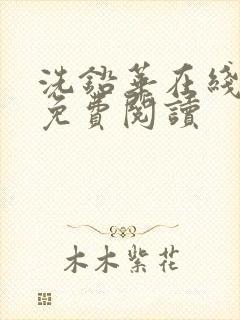 洗鉛華在綫
免費閱讀
木木紫花